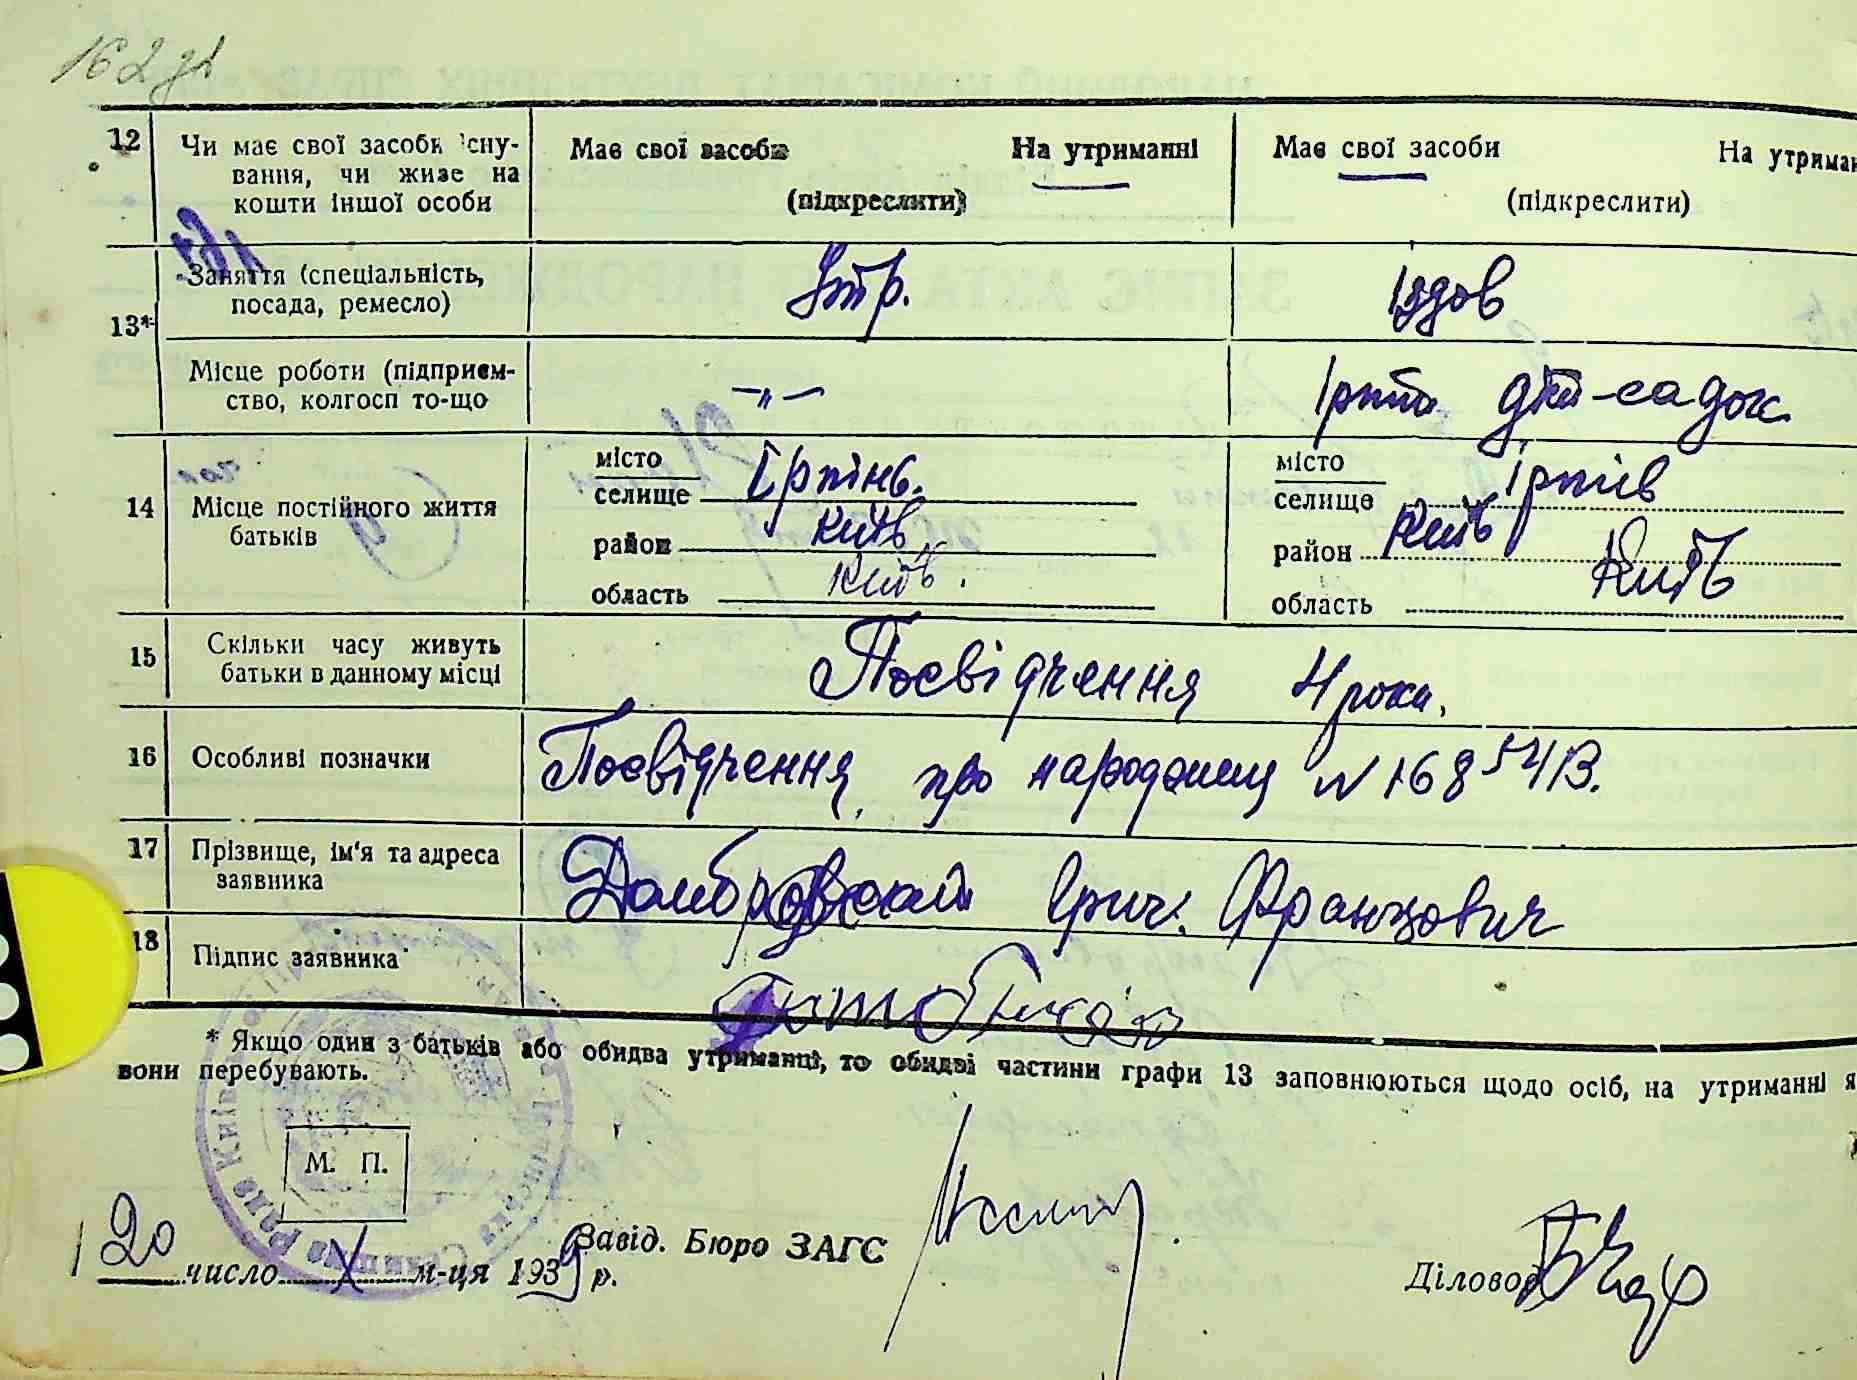 162
12 Чи має свої засоби існу-
вання, чи живе на
кошти іншої особи
Має свої засоби На утриманні
(підкреслити)
Має свої засоби На утриман
(підкреслити)
13* Заняття (спеціальність,
посада, ремесло)
Утр.
Місце роботи (підприєм-
ство, колгосп то-що
-„-
дит-садок
14 Місце постійного життя
батьків
місто
селище Ірпінь.
район Київ
область Київ.
місто
селище Ірпів
район Київ
область Київ
15 Скільки часу живуть
батьки в данному місці
Посвідчення 4 роки.
16 Особливі позначки
Посвідчення про народження N 168541В.
17 Прізвище, ім'я та адреса
заявника
Домбровский Франсцович
18 Підпис заявника
* Якщо один з батьків або обидва утриманці, то обидві частини графи 13 заповнюються щодо осіб, на утриманні я
вони перебувають.
М. П.
20 число X м-ця 1939 р.
Завід. Бюро ЗАГС
Діловод